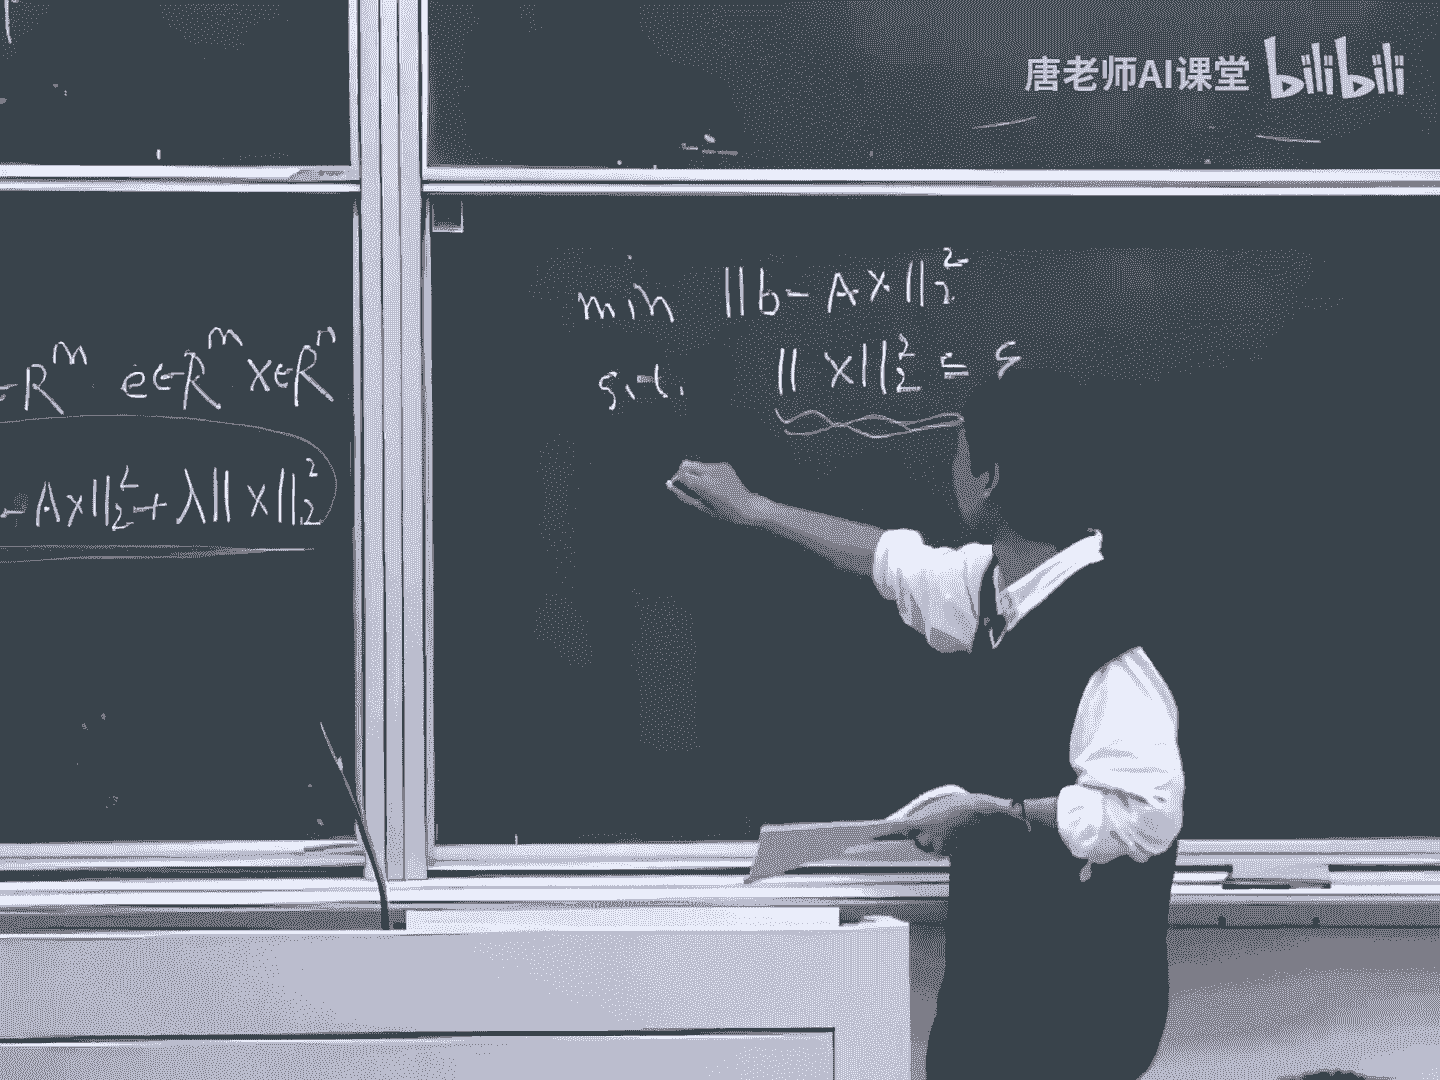 唐老师AI课堂 bilibili
∈R^m e∈R^m x∈R^n
-Ax||_2^2+λ||x||_2^2
min ||b-Ax||_2^2
s.t. ||x||_2^2 ≤ s